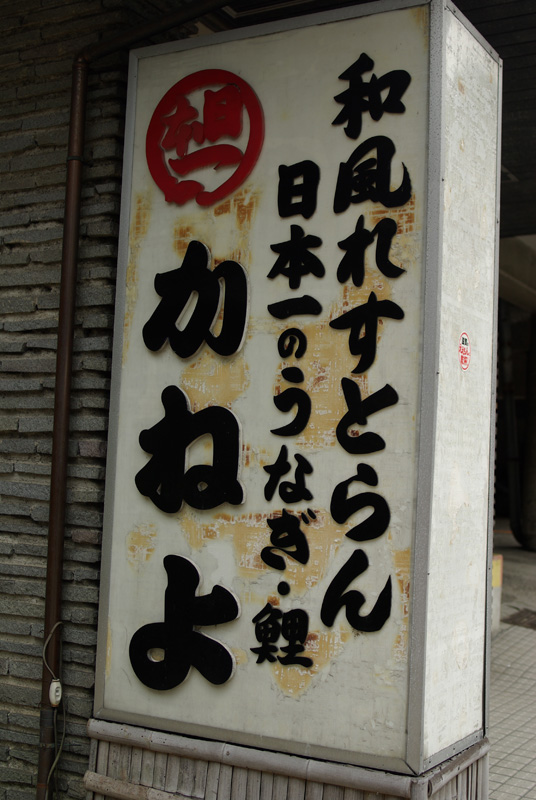 和風れすとらん
日本一のうなぎ・鯉
日本一
かねよ